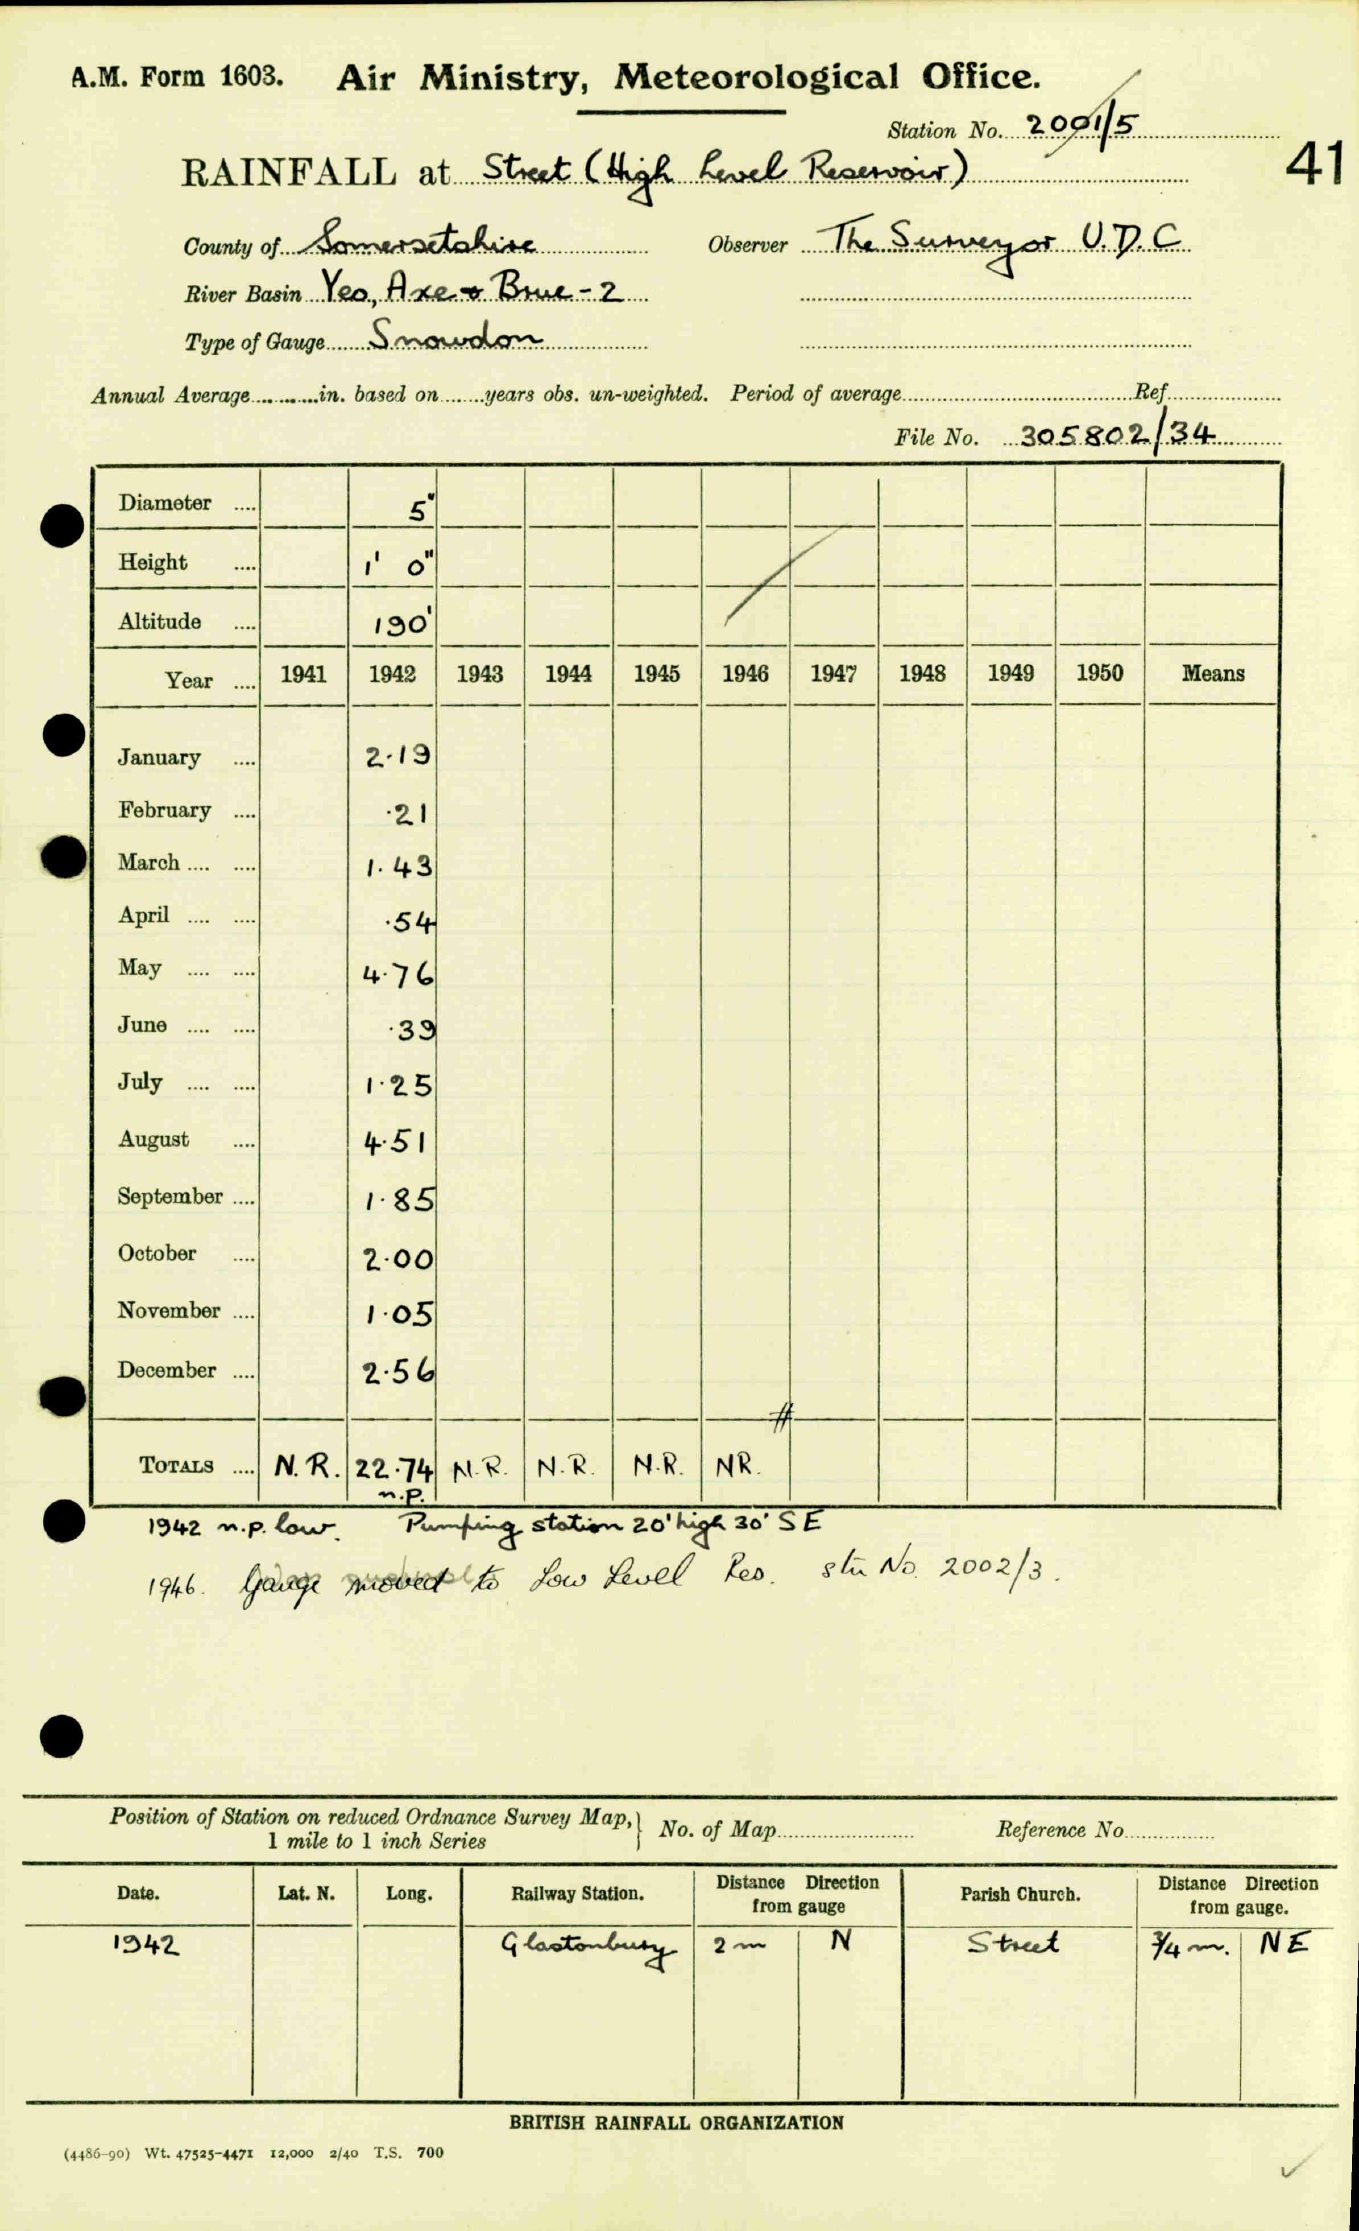 A.M. Form 1603. Air Ministry, Meteorological Office.
Station No. 2001/5
41
RAINFALL at Street (High Level Reservoir)
County of Somersetshire Observer The Surveyor U.D.C
River Basin Yeo, Axe & Brue - 2
Type of Gauge Snowdon
Annual Average in. based on years obs. un-weighted. Period of average Ref.
File No. 305802/34
Diameter .... 5"
Height .... 1' 0"
Altitude .... 190'
Year .... 1941 1942 1943 1944 1945 1946 1947 1948 1949 1950 Means
January .... 2.19
February .... .21
March .... .... 1.43
April .... .... .54
May .... .... 4.76
June .... .... .39
July .... .... 1.25
August .... 4.51
September .... 1.85
October .... 2.00
November .... 1.05
December .... 2.56
#
TOTALS .... N.R. 22.74 N.R. N.R. N.R. NR.
n.p.
1942 n.p. low. Pumping station 20' high 30' SE
1946. Gauge moved to Low Level Res. stn No. 2002/3.
Position of Station on reduced Ordnance Survey Map, } No. of Map Reference No.
1 mile to 1 inch Series
Date. Lat. N. Long. Railway Station. Distance Direction from gauge Parish Church. Distance Direction from gauge.
1942 Glastonbury 2 m N Street 3/4 m. NE
BRITISH RAINFALL ORGANIZATION
(4486-90) Wt. 47525-4471 12,000 2/40 T.S. 700